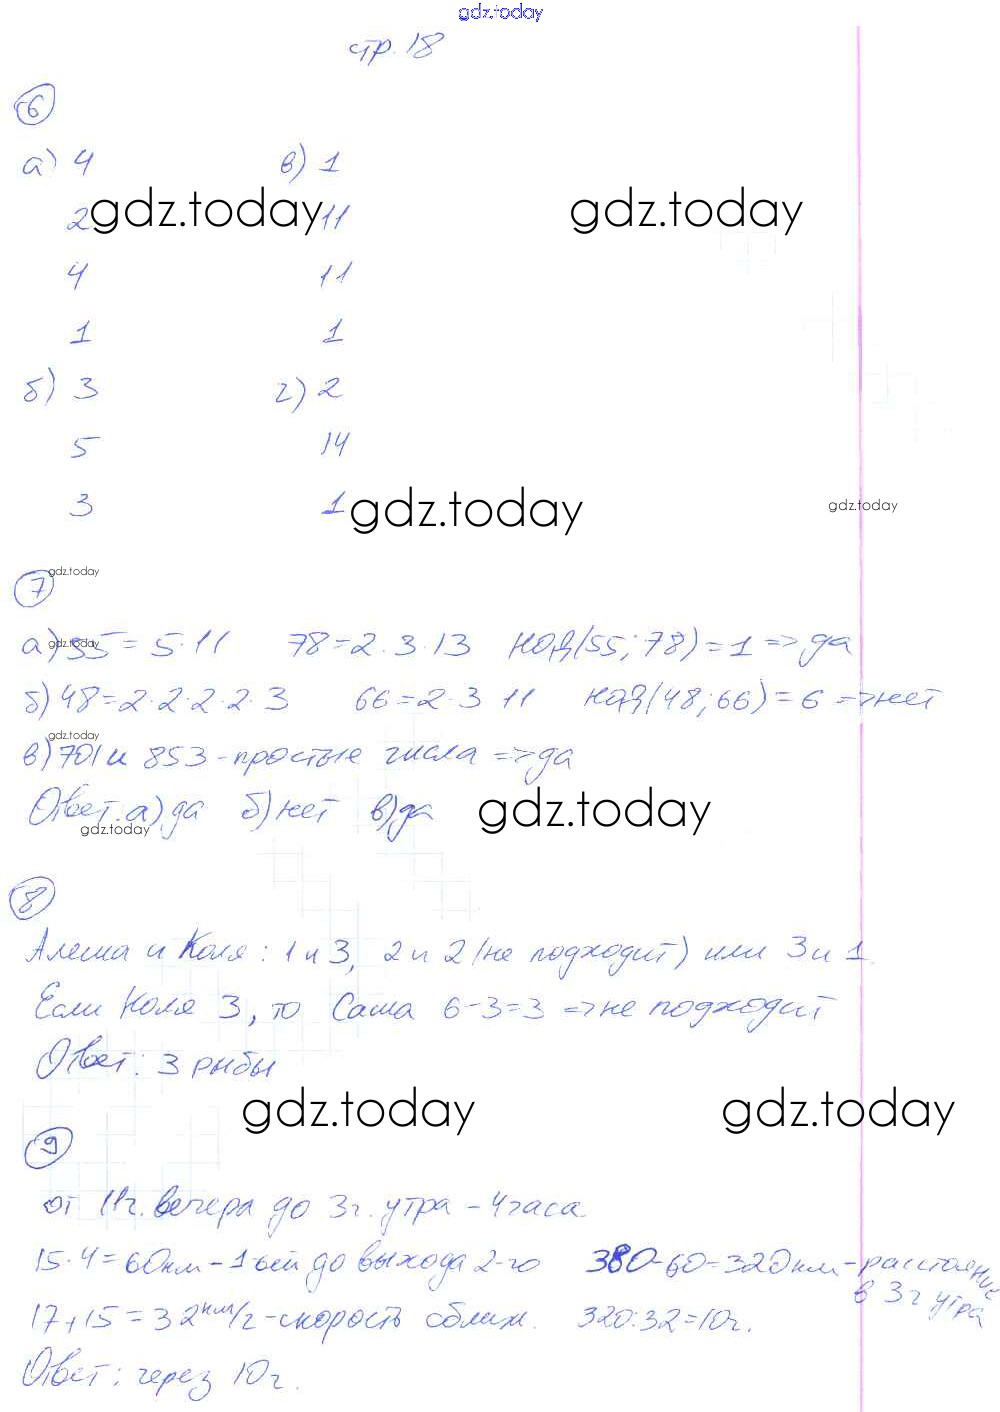 gdz.today
стр. 18
6
а) 4 в) 1
2 gdz.today 11 gdz.today
4 11
1 1
б) 3 г) 2
5 14
3 1 gdz.today gdz.today
gdz.today
7
а) 55 = 5·11 78 = 2·3·13 НОД(55; 78) = 1 => да
gdz.today
б) 48 = 2·2·2·2·3 66 = 2·3 11 НОД(48; 66) = 6 => нет
gdz.today
в) 701 и 853 - простые числа => да
Ответ. а) да б) нет в) да gdz.today
gdz.today
8
Алеша и Коля: 1 и 3, 2 и 2 (не подходит) или 3 и 1.
Если Коля 3, то Саша 6-3=3 => не подходит
Ответ: 3 рыбы
gdz.today gdz.today
9
от 11ч. вечера до 3ч. утра - 4 часа.
15·4=60км - 1-ый до выхода 2-го 380-60=320км - расстояние в 3ч утра
17+15=32км/ч - скорость сближ. 320:32=10ч.
Ответ: через 10ч.